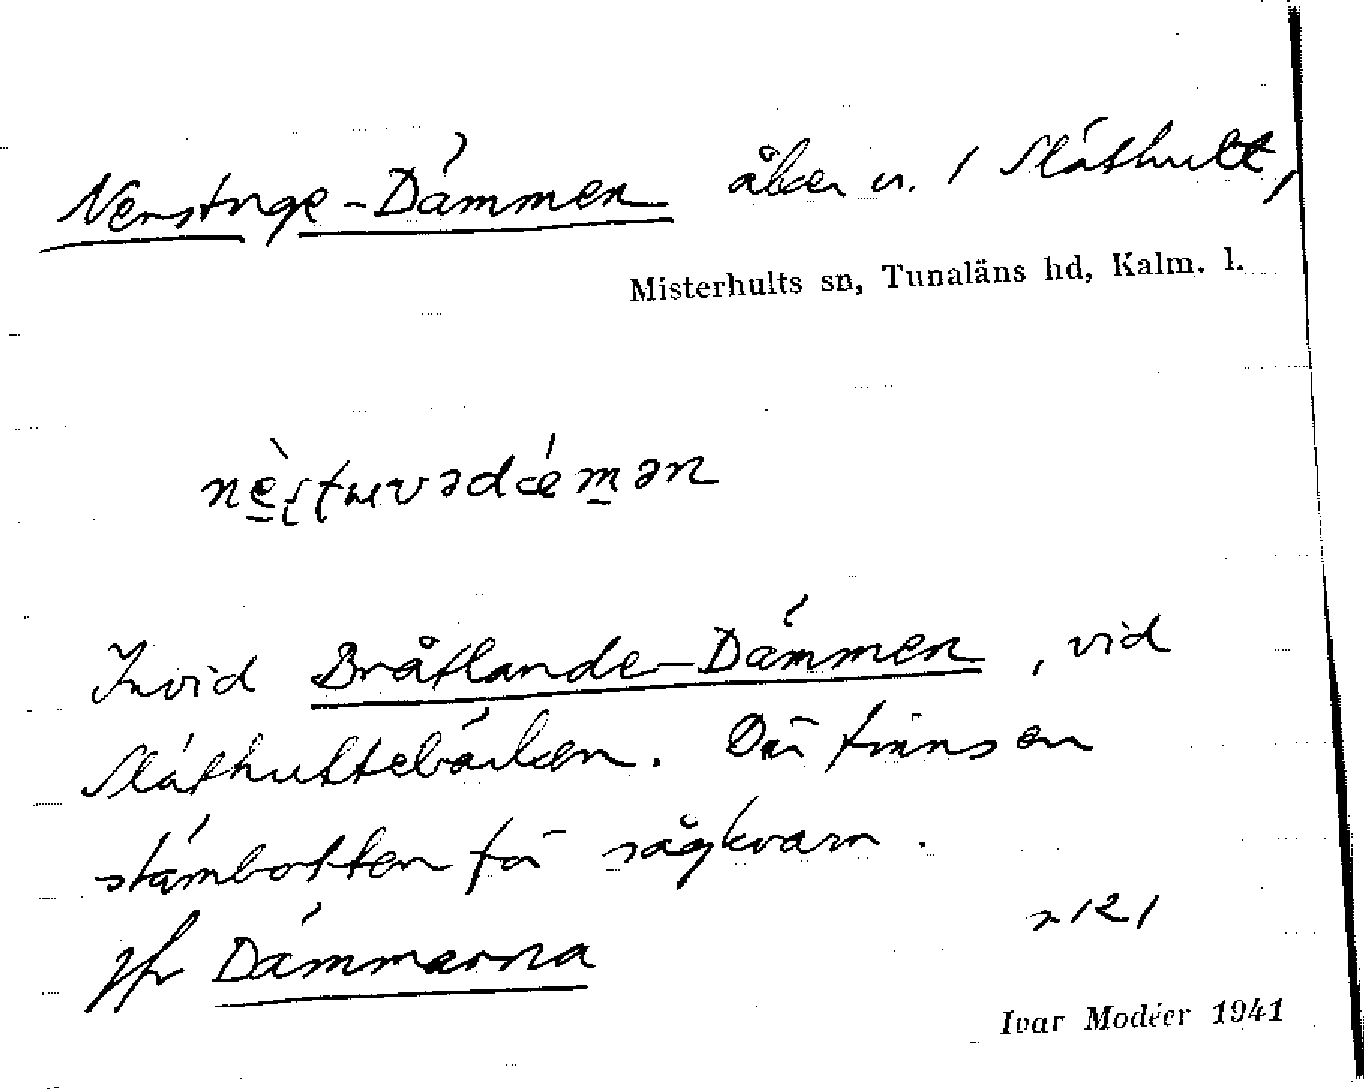 Nerstuge-Dämmen åker n. 1 Släthult,
Misterhults sn, Tunaläns hd, Kalm. l.
Invid Bråtlande-Dämmen, vid
Släthultebäcken. Där finns en
stämbotten för sågkvarn.
Jfr Dämmarna
s 121
Ivar Modéer 1941